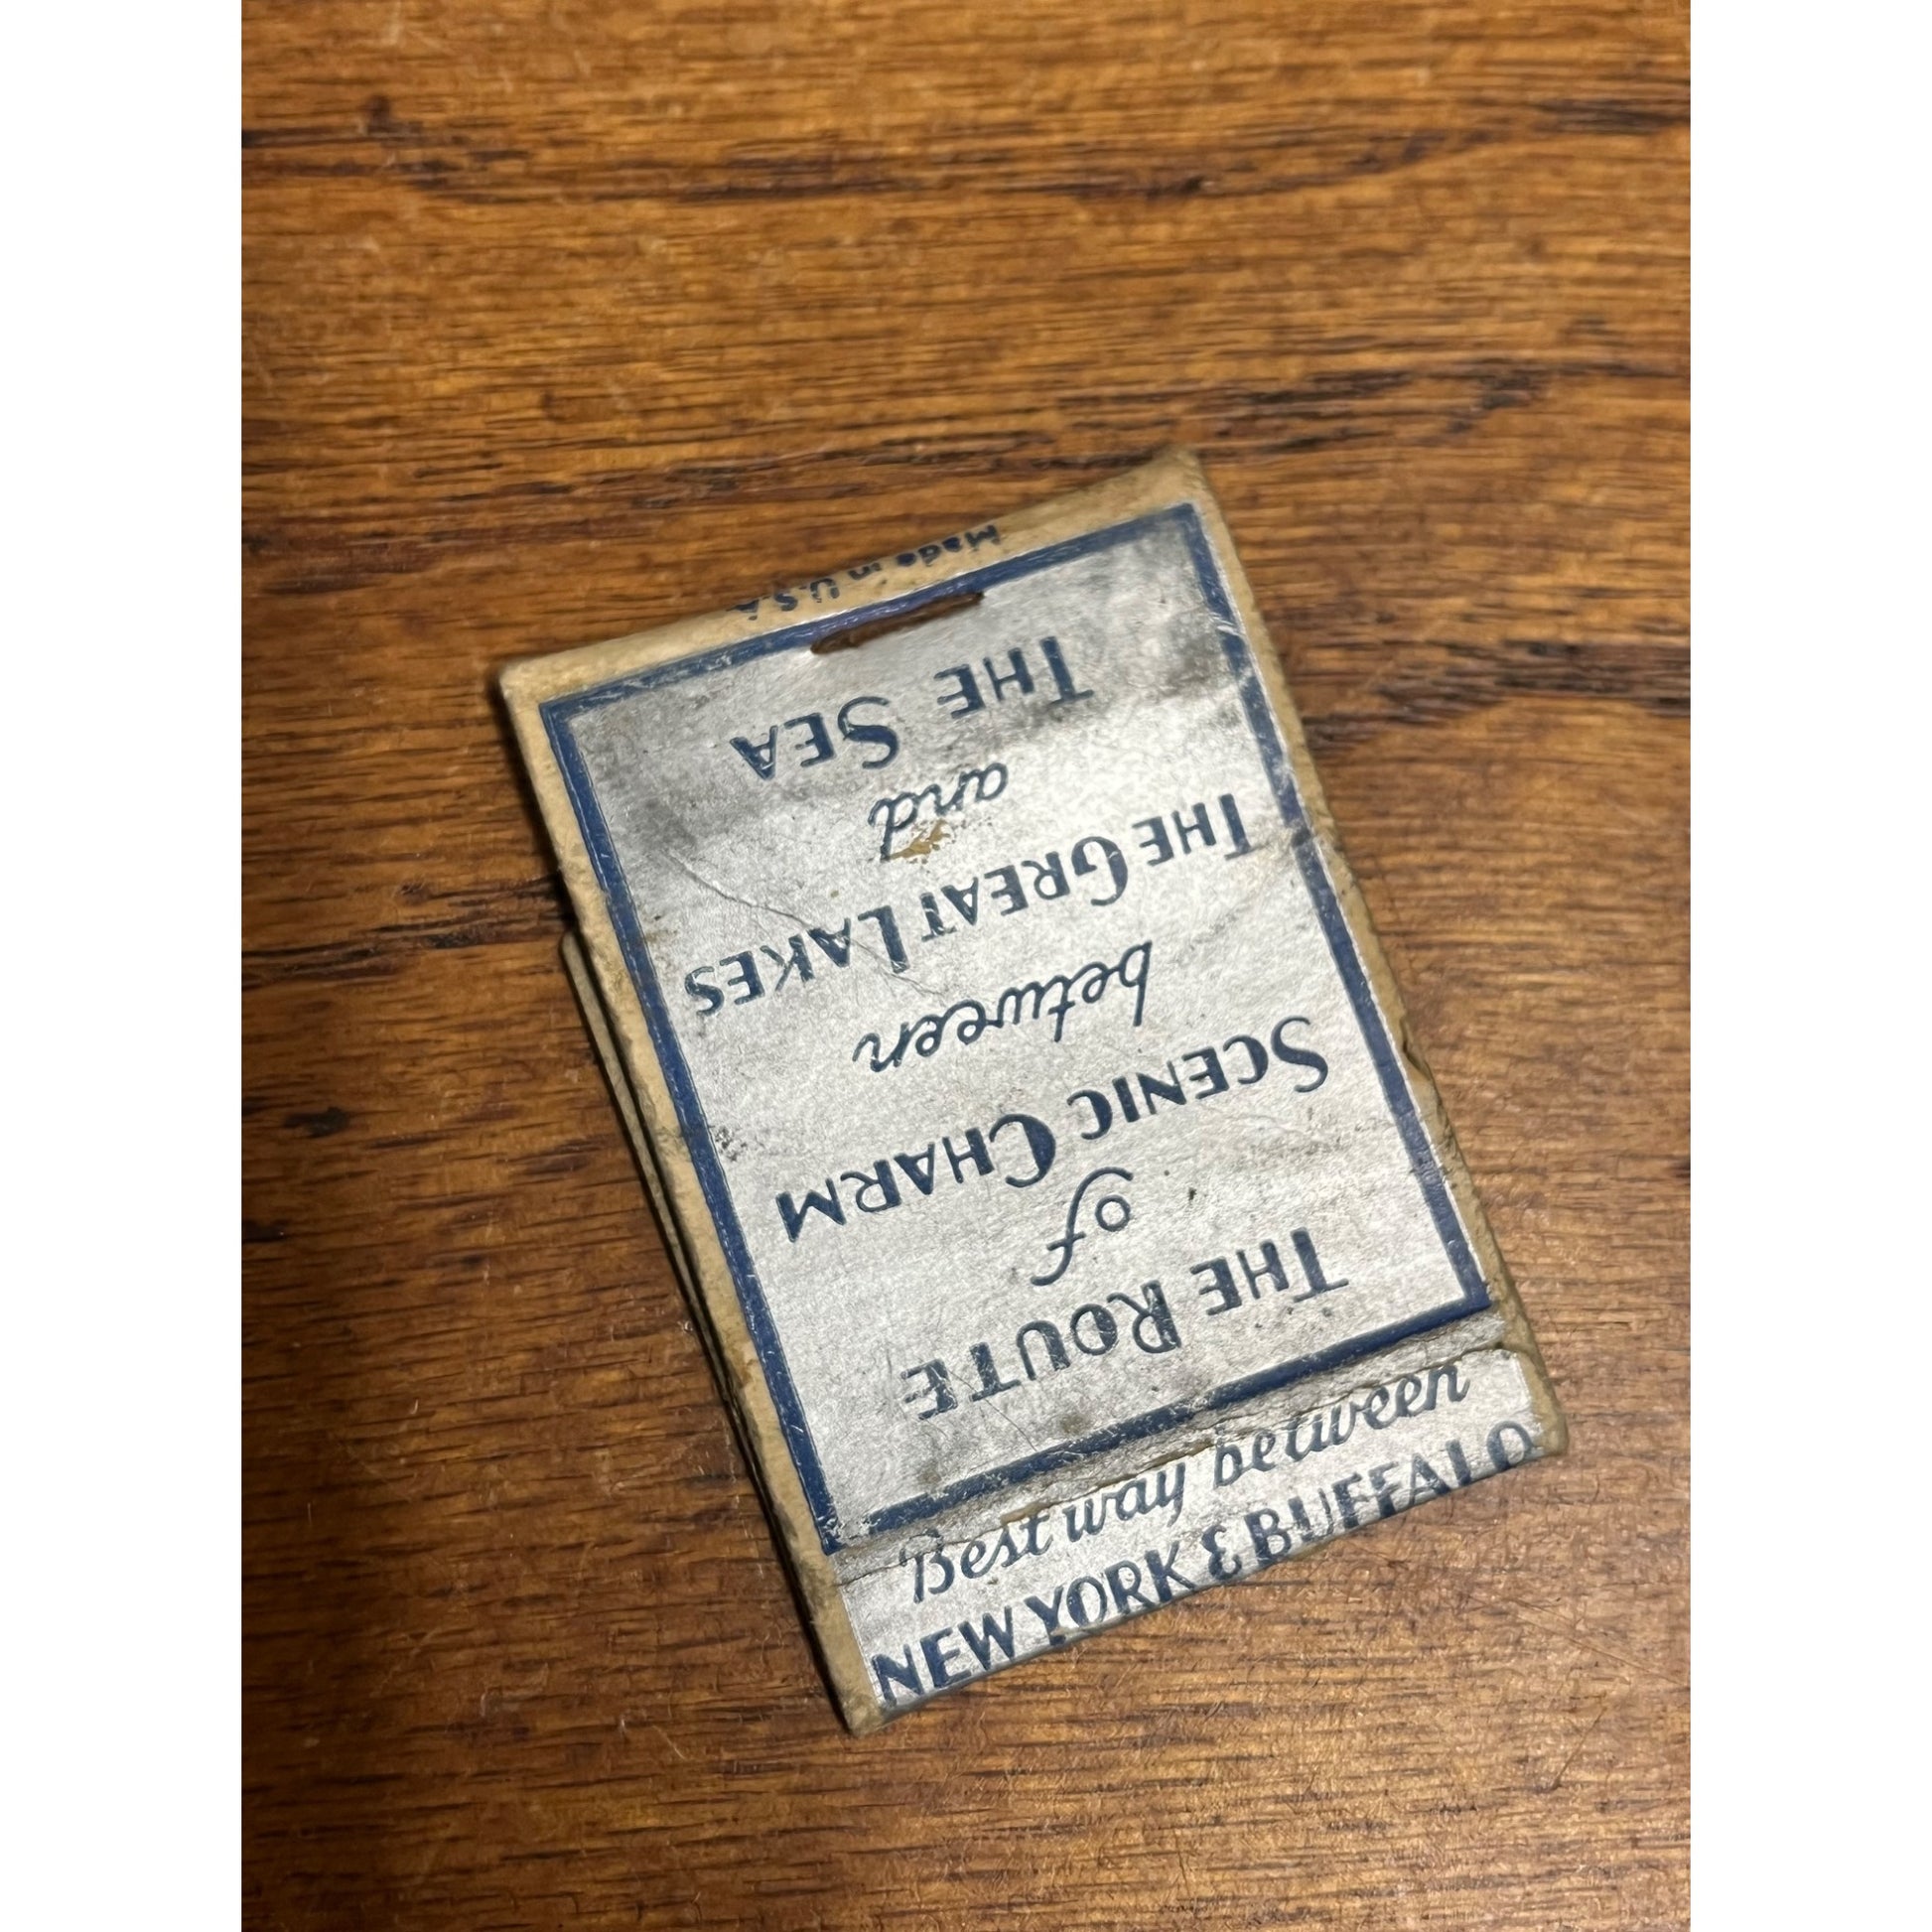 THE ROUTE
of
SCENIC CHARM
between
THE GREAT LAKES
and
THE SEA
Made in U.S.A.
Best way between
NEW YORK & BUFFALO